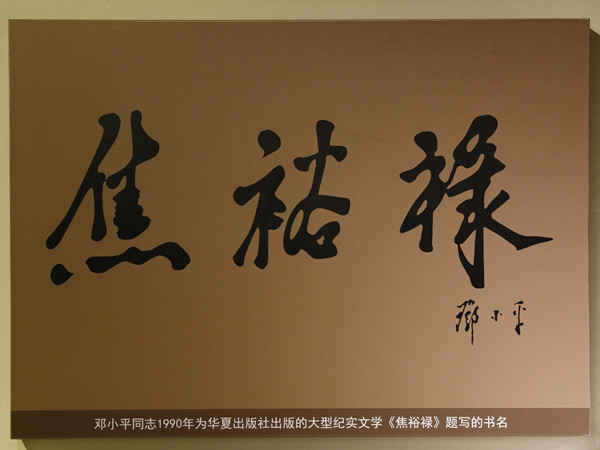 焦裕禄
邓小平
邓小平同志1990年为华夏出版社出版的大型纪实文学《焦裕禄》题写的书名